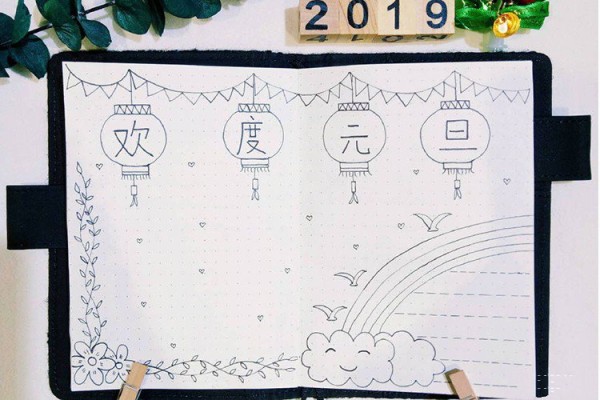 2019
欢度元旦